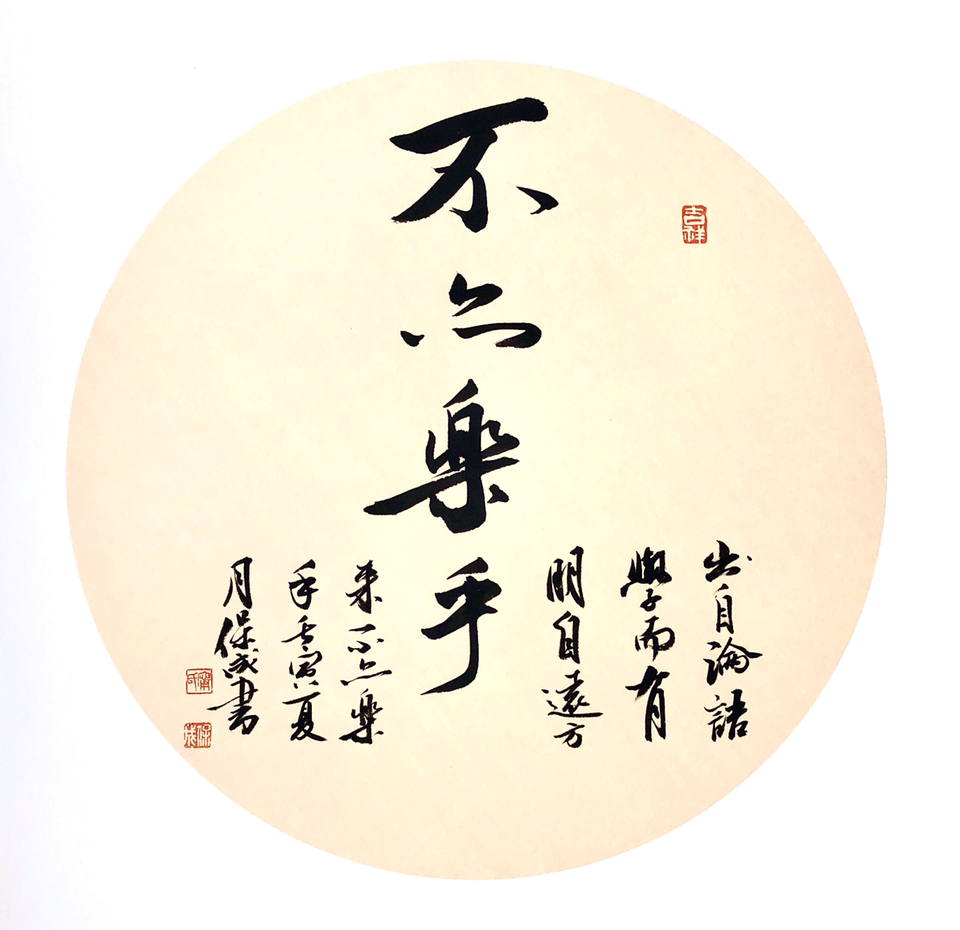 不亦樂乎
吉祥
出自論語
學而有
朋自遠方
来不亦樂
乎壬寅夏
月保成書
保成